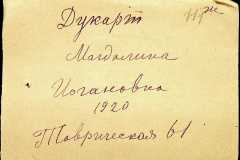 Дукарт
Магдалина
Иогановна
1920
Таврическая 61